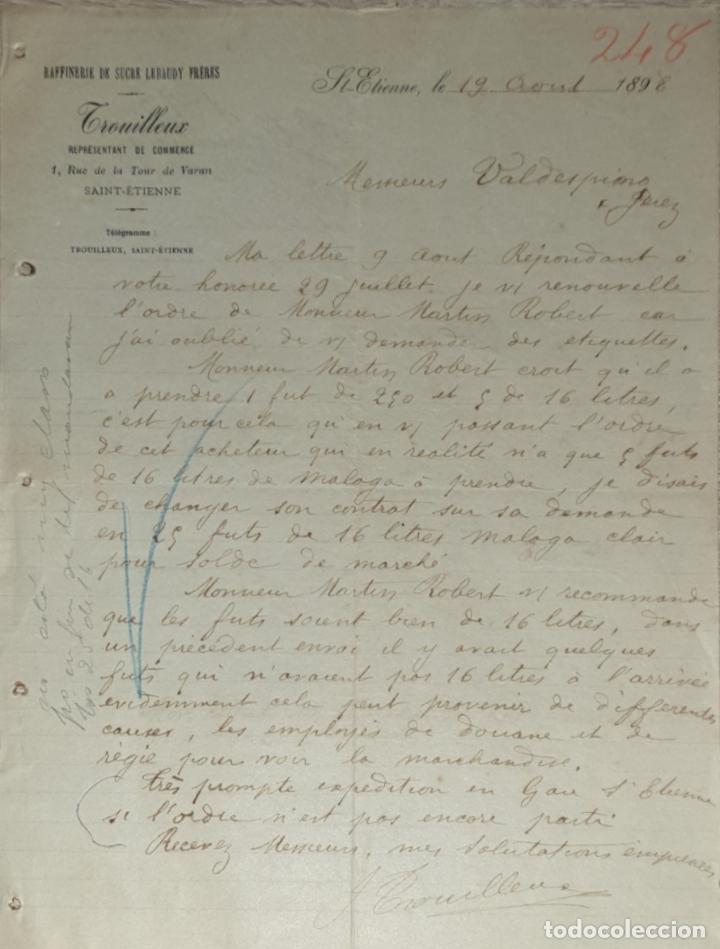 248
RAFFINERIE DE SUCRE LEBAUDY FRÈRES
St-Etienne, le 19 Aout 1898
Trouilleux
REPRÉSENTANT DE COMMERCE
1, Rue de la Tour de Varan
SAINT-ÉTIENNE
Télégramme :
TROUILLEUX, SAINT-ÉTIENNE
Messieurs Valdespino
Jerez
Ma lettre 9 Aout Répondant à
votre honorée 29 juillet. je vs renouvelle
l'ordre de Monsieur Martin Robert car
j'ai oublié de vs demander des etiquettes.
Monsieur Martin Robert croit qu'il a
a prendre 1 fut de 250 et 5 de 16 litres,
c'est pour cela qu'en vs passant l'ordre
de cet acheteur qui en réalité n'a que 5 futs
de 16 litres de Malaga à prendre, je disais
de changer son contrat sur sa demande
en 25 futs de 16 litres Malaga clair
pour solde de marché
Monsieur Martin Robert vs recommande
que les futs soient bien de 16 litres, dans
un précédent envoi il y avait quelques
futs qui n'avaient pas 16 litres à l'arrivée
evidemment cela peut provenir de differentes
causes, les employés de douane et de
régie pour voir la marchandise.
très prompte expedition en Gare St Etienne
si l'ordre n'est pas encore parti
Recevez Messieurs, mes Salutations empressées
J Trouilleux
no está muy claro
pero en fin de
los 25 de 16
todocoleccion